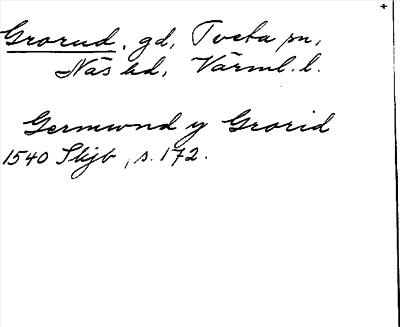 Grorud, gd, Tveta sn,
Näs hd, Värml. l.
Germund y Grorid
1540 Skjb, s. 172.